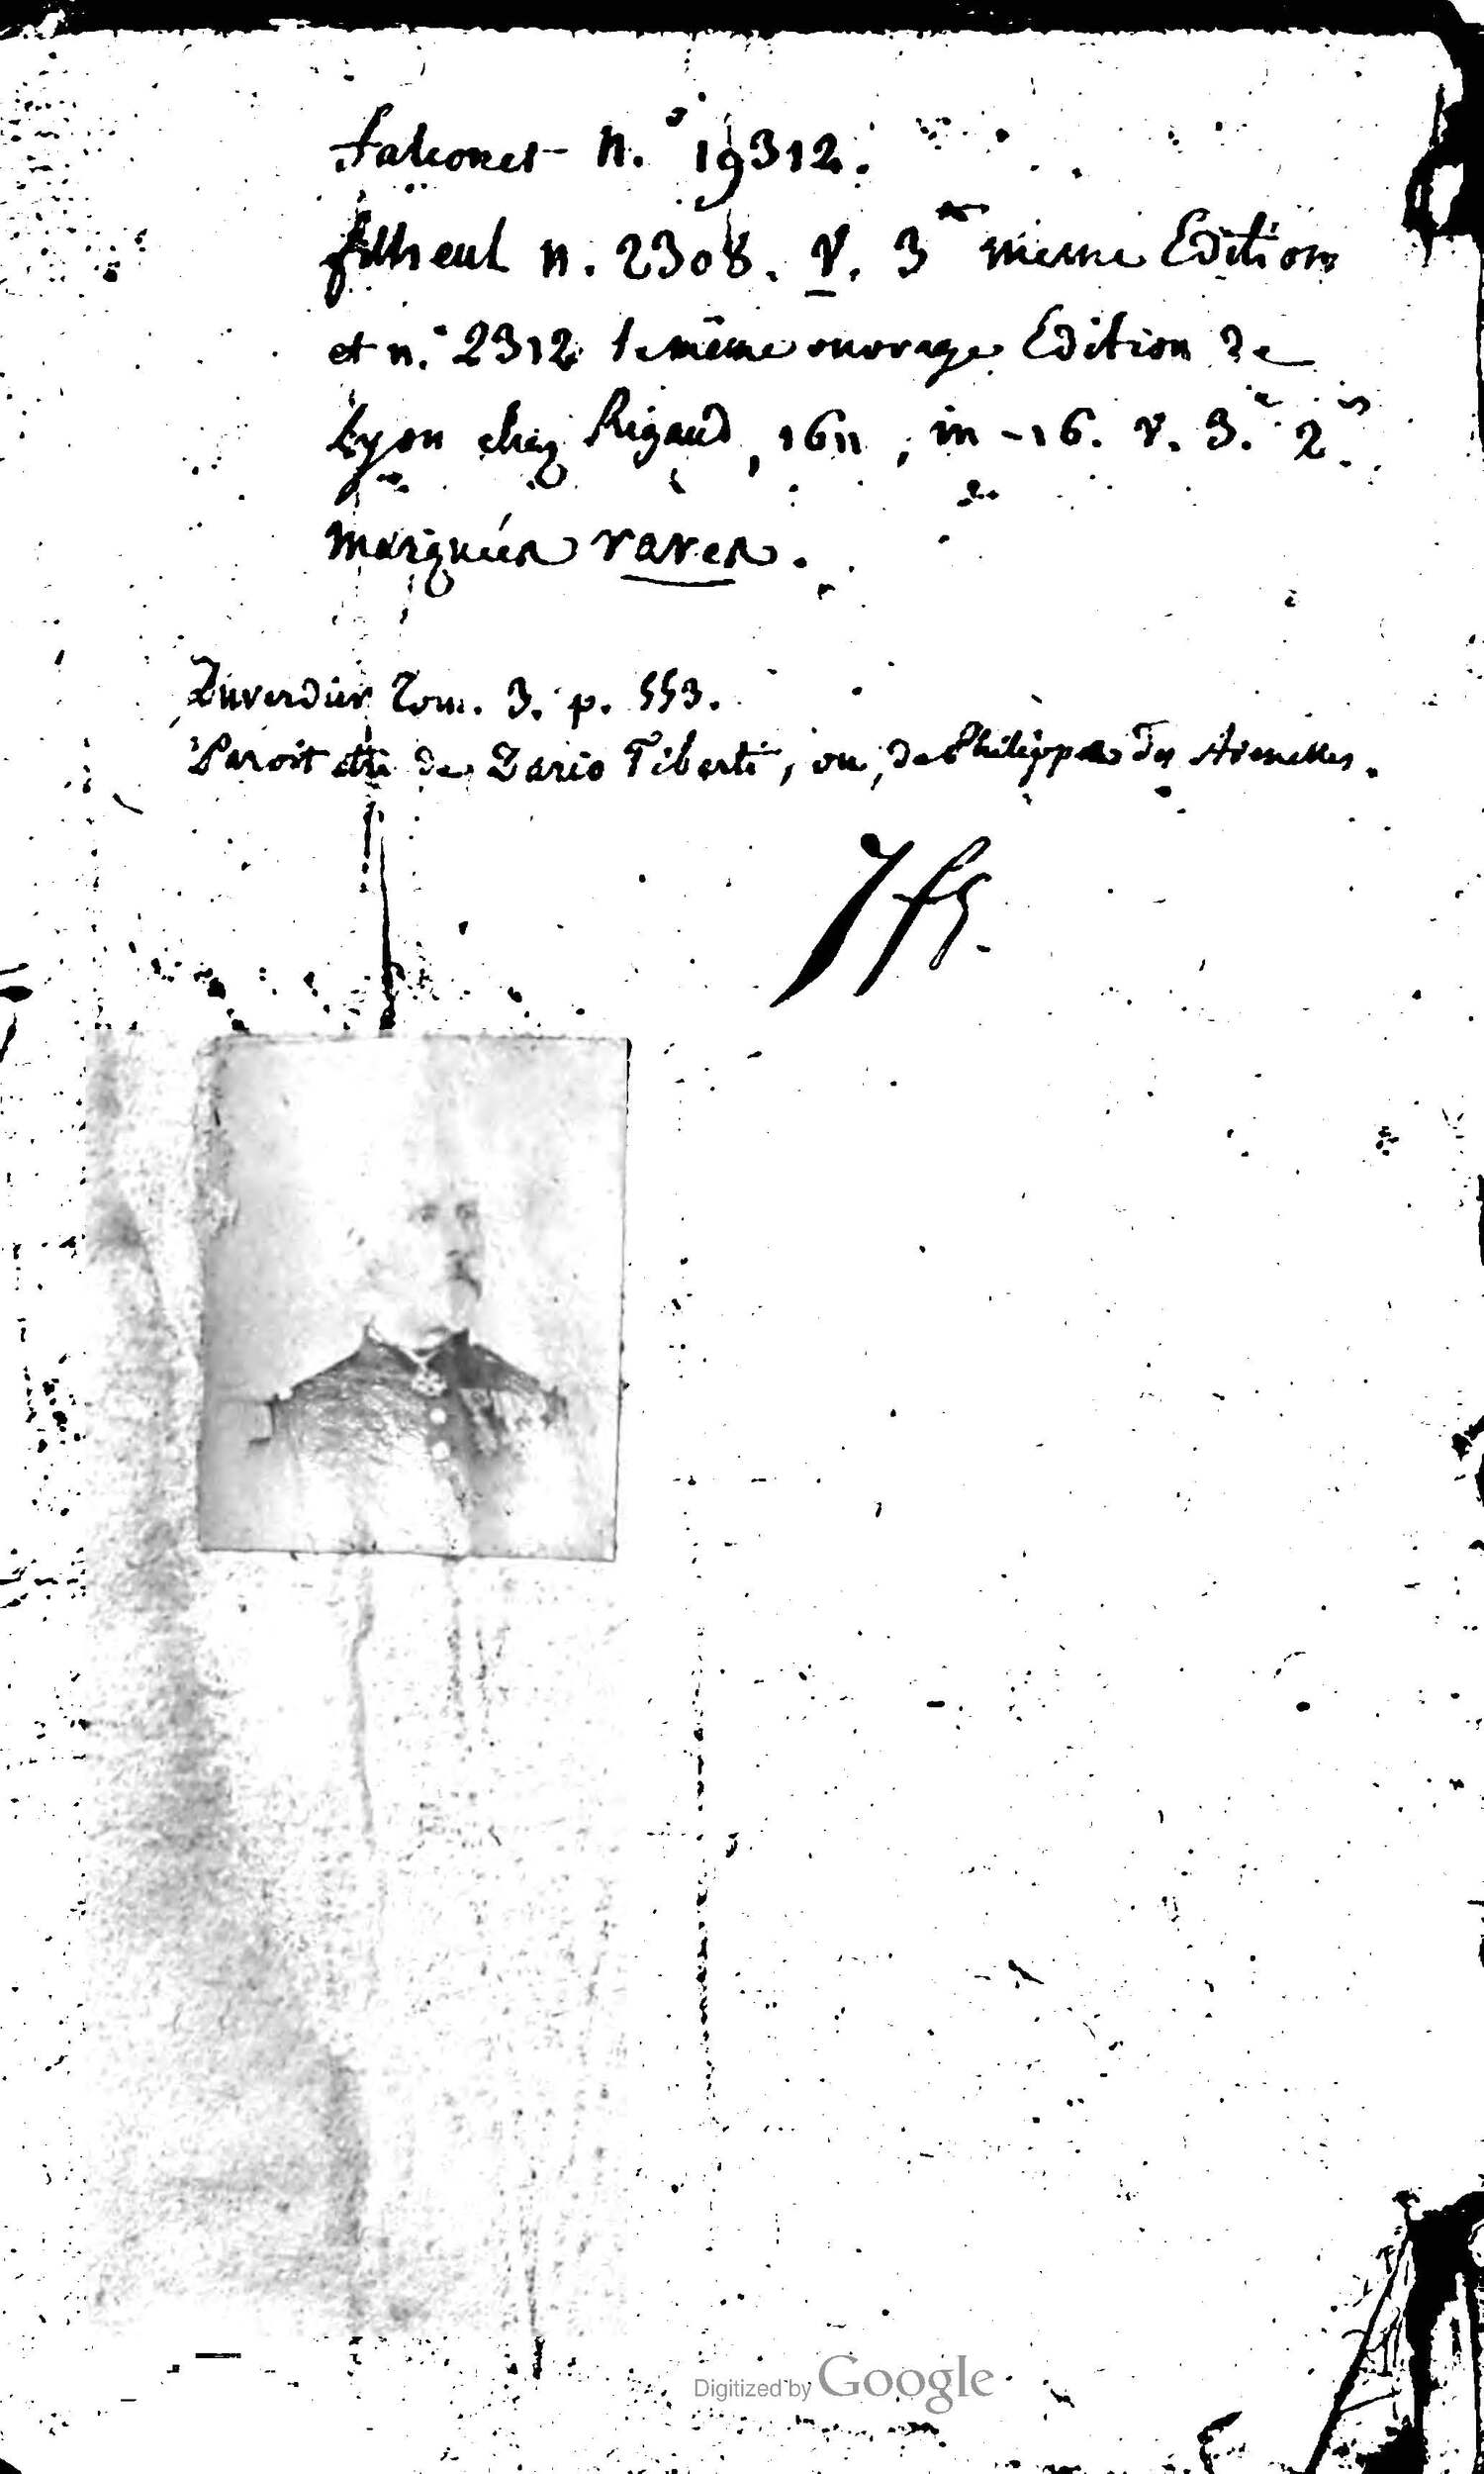 Falconet n.° 19312.
filheul n. 2308. V. 3 meme Edition
et n.° 2312 le même ouvrage Edition de
Lyon chez Rigaud, 1611, in-16. v. 3. 2
marquées rares.
Duverdier Tom. 3. p. 553.
Paroit etre de Dario Tiberti, ou, de Philippes Des Avenelles.
Digitized by Google